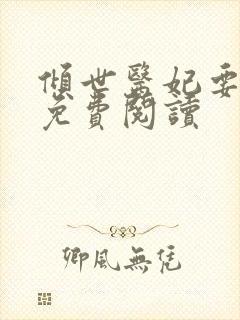 傾世醫妃要
免費閱讀
卿風無凭